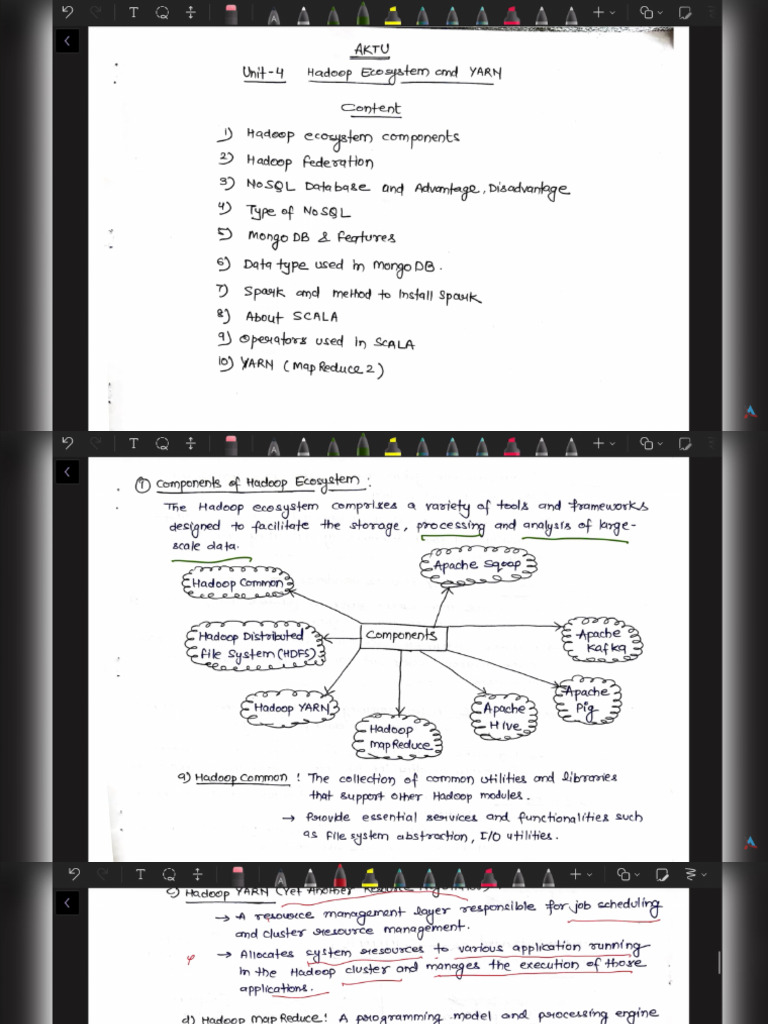 AKTU
Unit-4 Hadoop Ecosystem and YARN
Content
1) Hadoop ecosystem components
2) Hadoop federation
3) NoSQL Database and Advantage, Disadvantage
4) Type of NoSQL
5) MongoDB & features
6) Data type used in MongoDB.
7) Spark and method to install Spark
8) About SCALA
9) Operators used in SCALA
10) YARN (MapReduce 2)
① Components of Hadoop Ecosystem:
The Hadoop ecosystem comprises a variety of tools and frameworks
designed to facilitate the storage, processing and analysis of large-
scale data.
Apache Sqoop
Hadoop Common
Components
Apache
Kafka
Hadoop Distributed
File System (HDFS)
Apache
Pig
Hadoop YARN
Apache
Hive
Hadoop
MapReduce
a) Hadoop Common: The collection of common utilities and libraries
that support other Hadoop modules.
→ Provide essential services and functionalities such
as file system abstraction, I/O utilities.
c) Hadoop YARN (Yet Another Resource
→ A resource management layer responsible for job scheduling
and cluster resource management.
→ Allocates system resources to various application running
in the Hadoop cluster and manages the execution of those
applications.
d) Hadoop MapReduce: A programming model and processing engine